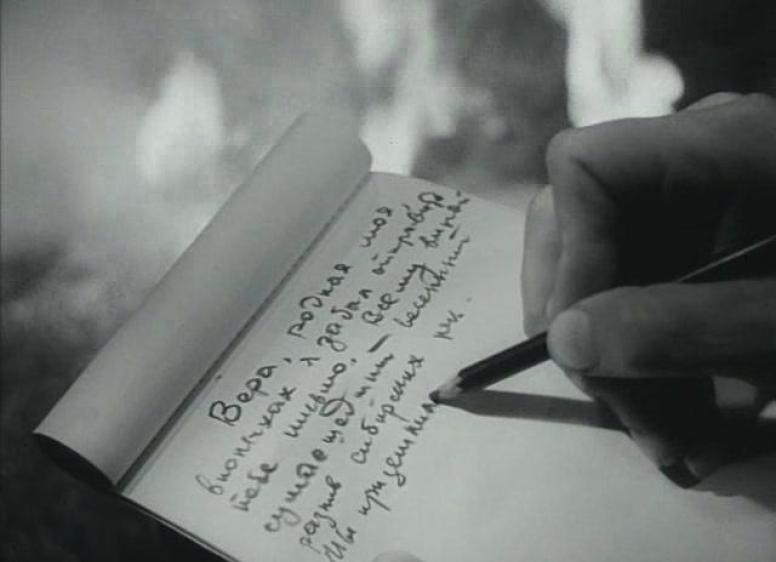 Вера, родная моя
впопыхах я забыл отправить
тебе письмо. Всему виной
сумасшедший – весенний
разлив сибирских рек.
Мы приземлил